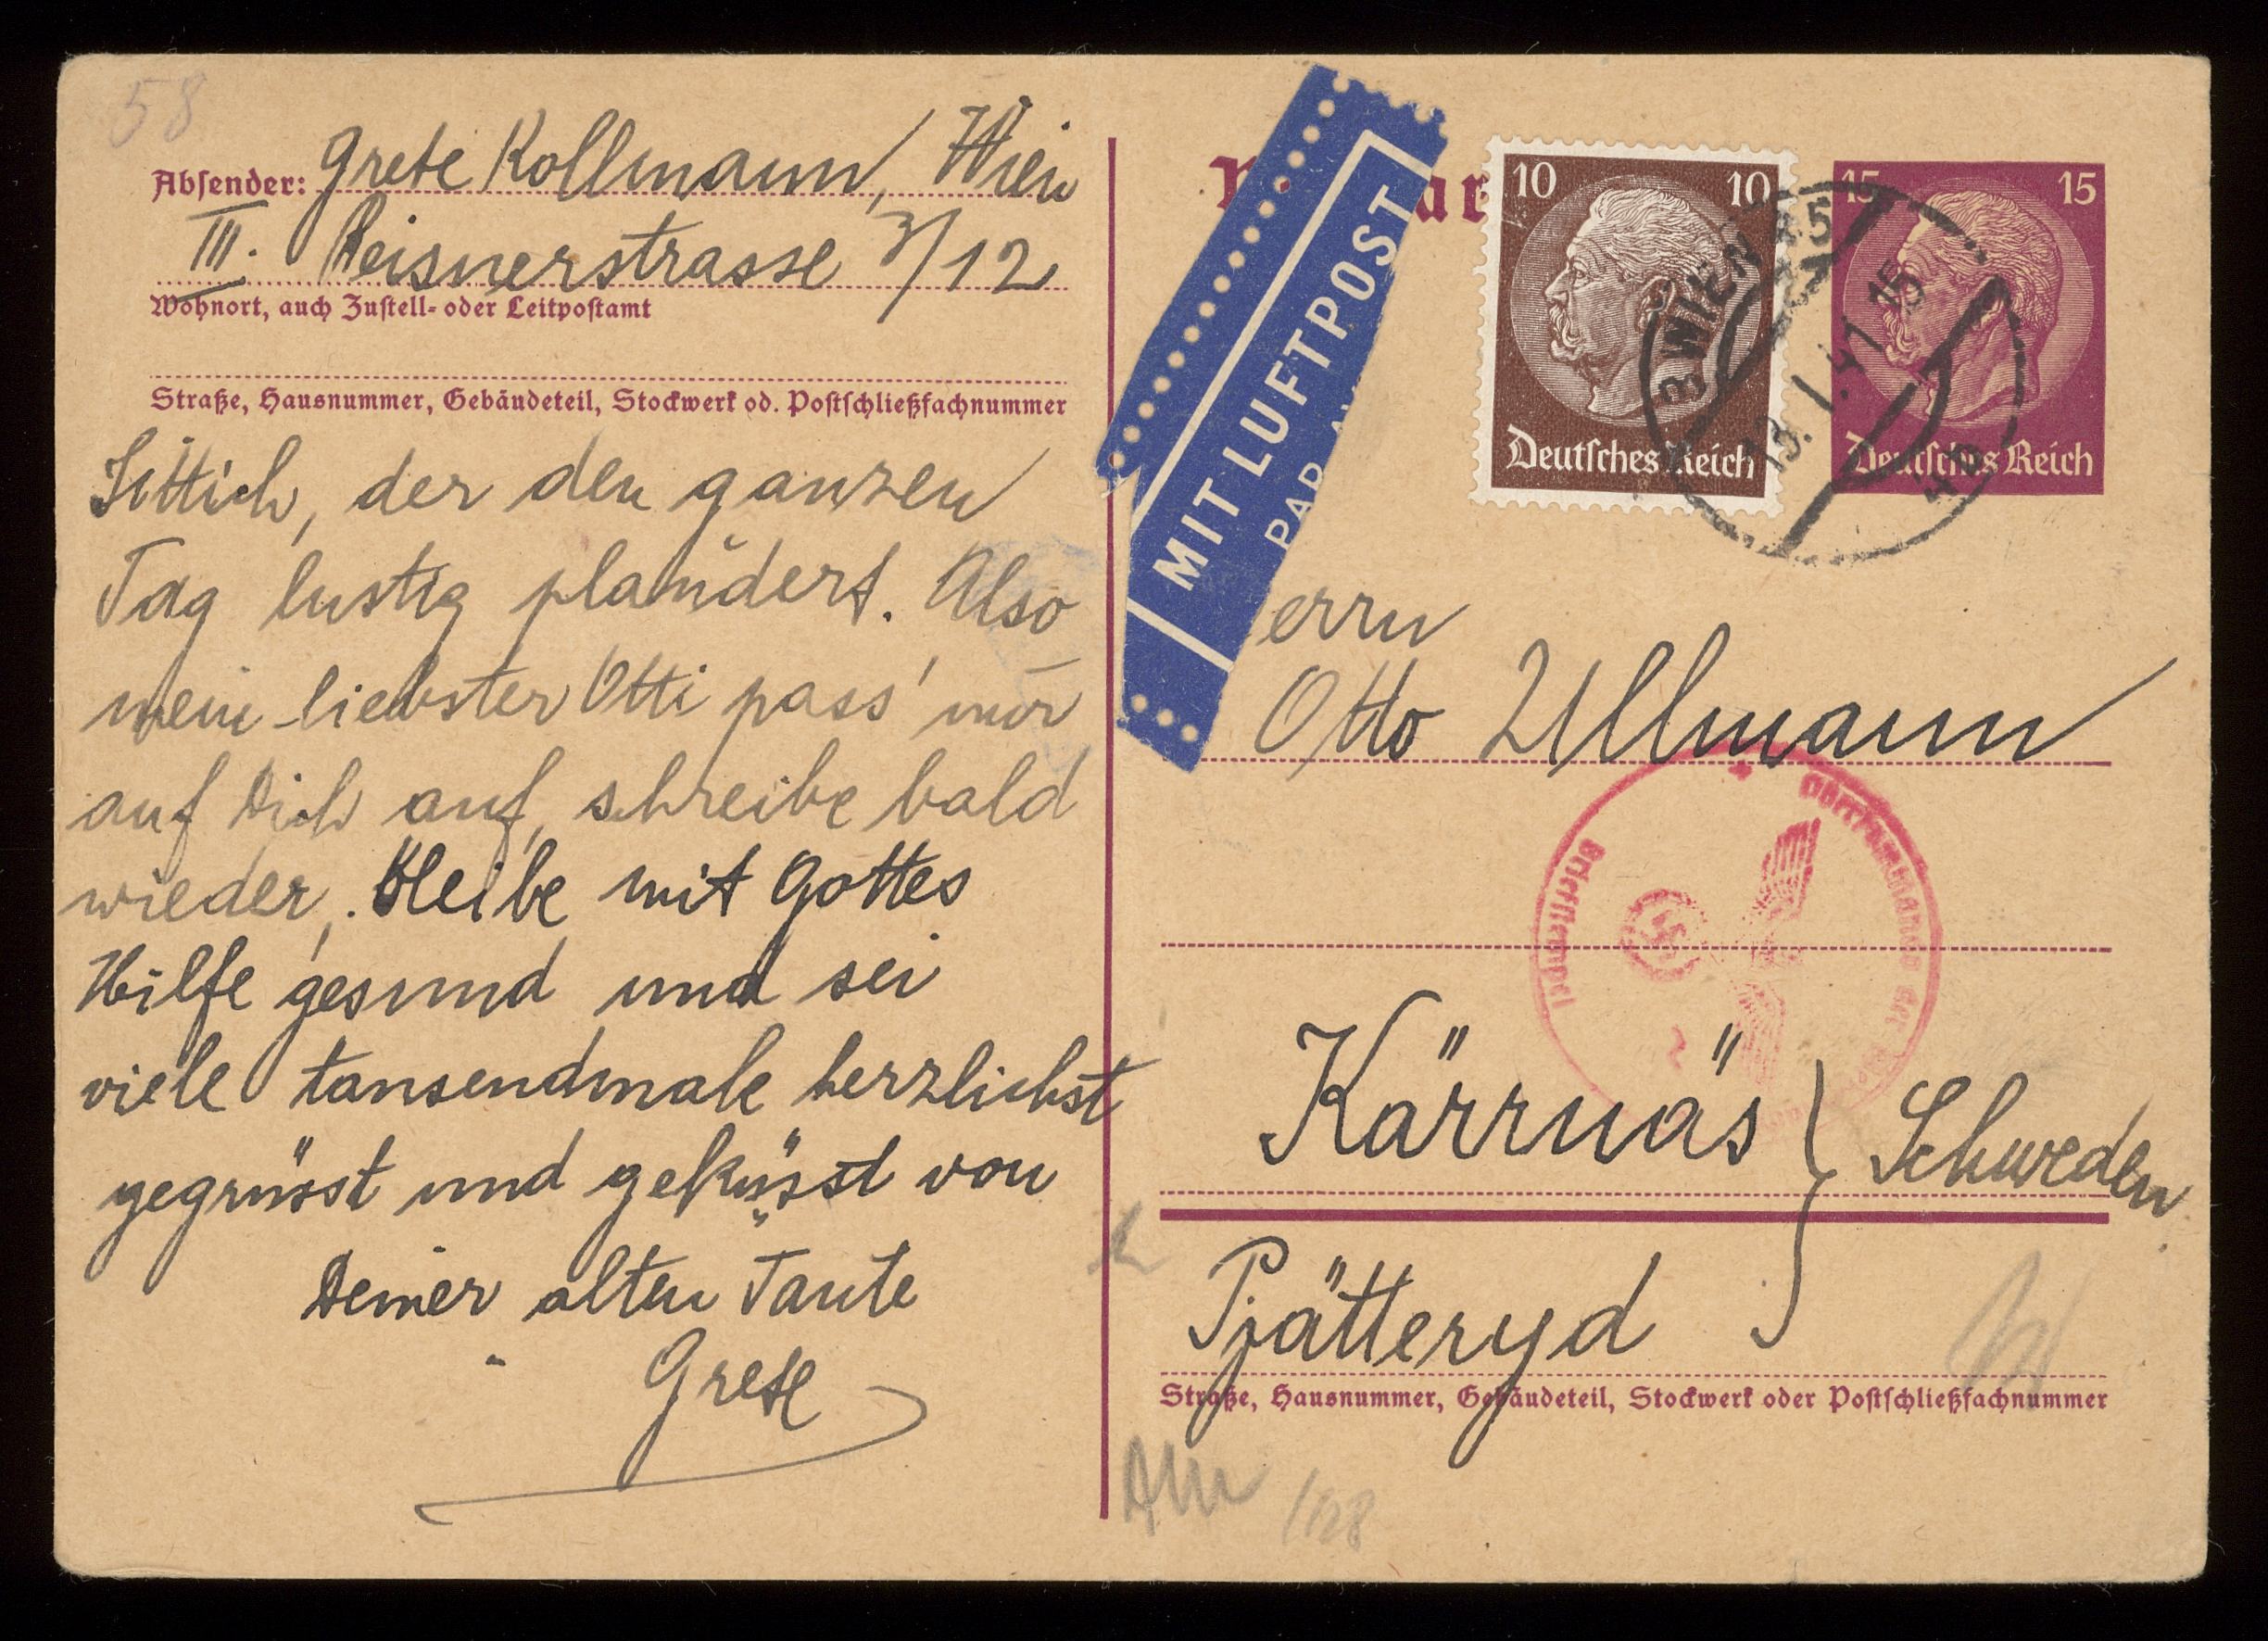 58
Absender: Grete Kollmann, Wien
III. Reisnerstrasse 3/12
Wohnort, auch Zustell- oder Leitpostamt
Straße, Hausnummer, Gebäudeteil, Stockwerk od. Postschließfachnummer
Sittich, der den ganzen
Tag lustig plaudert. Also
mein liebster Otti pass' nur
auf Dich auf, schreibe bald
wieder. Bleibe mit Gottes
Hilfe gesund und sei
viele tausendmale herzlichst
gegrüsst und geküsst von
Deiner alten Tante
Grete
MIT LUFTPOST
PAR
10 10
Deutsches Reich
15 15
Deutsches Reich
WIEN
13. 1. 41 15
errn
Otto Ullmann
Briefstempel
Oberkommando der
Kärrnäs } Schweden
Pjätteryd
Straße, Hausnummer, Gebäudeteil, Stockwerk oder Postschließfachnummer